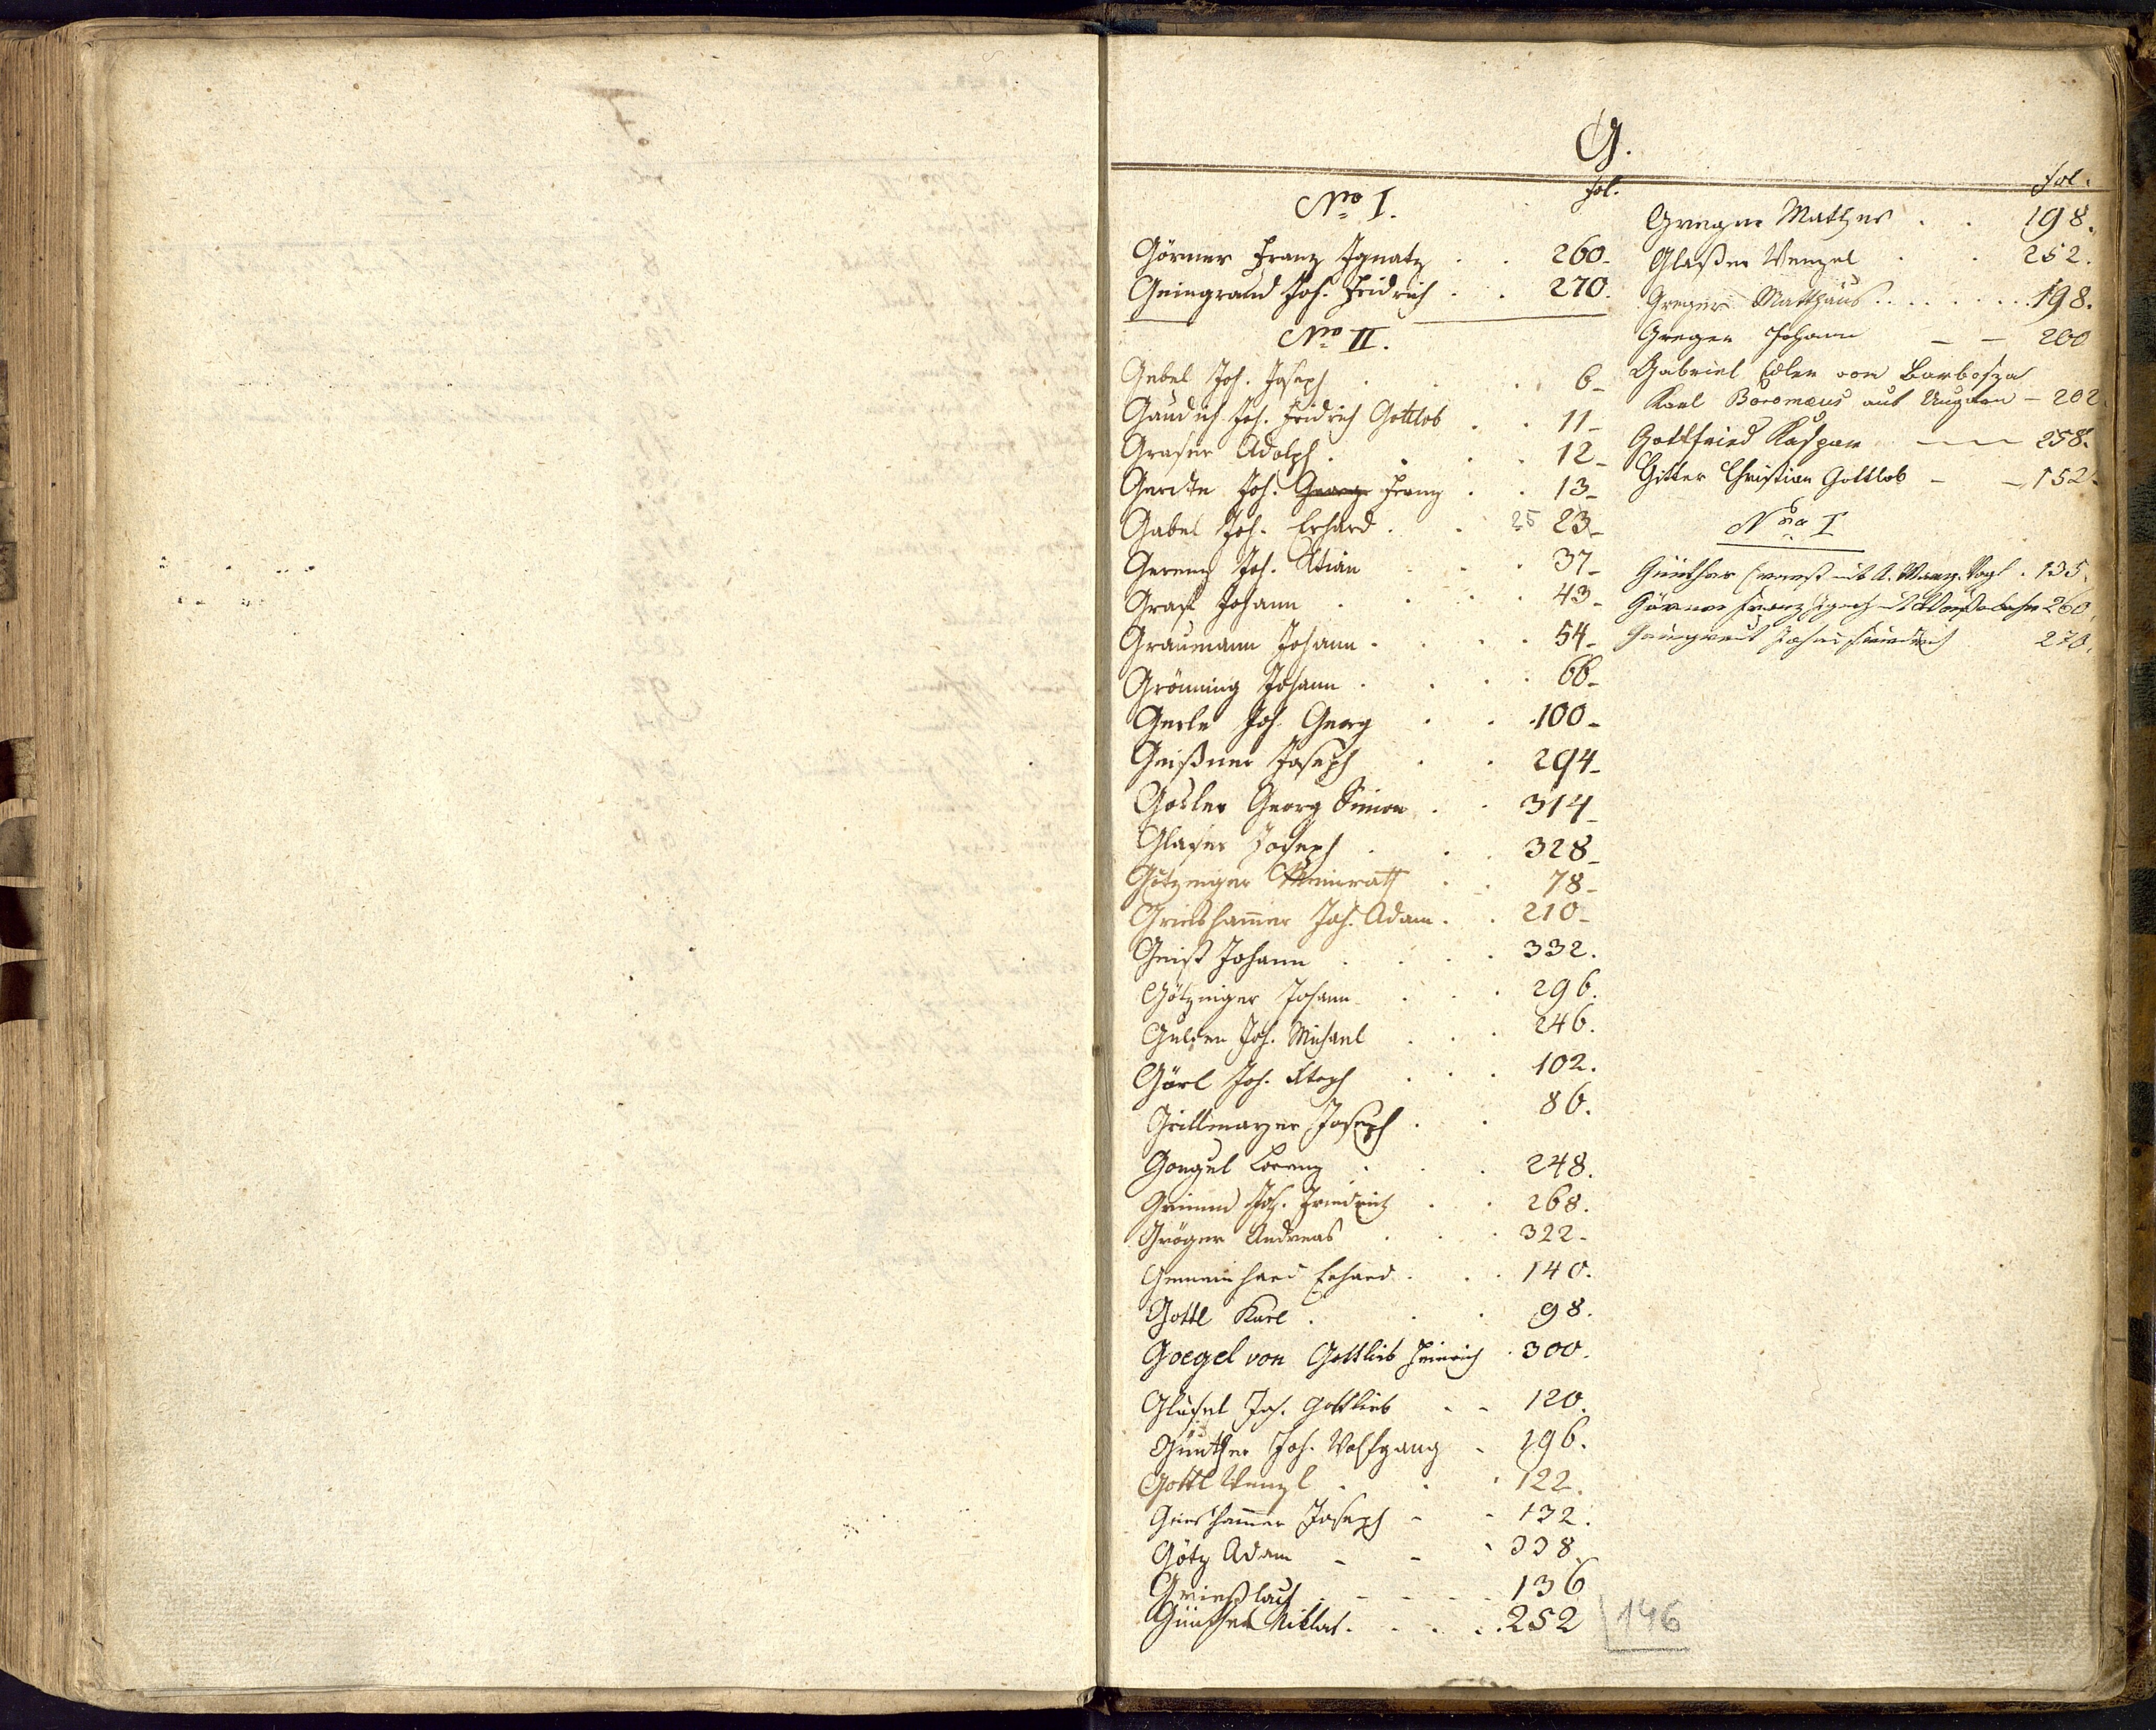 G.
No I. fol.
Görner Franz Ignatz . . 260.
Geingrand Joh. Fridrich . . 270.
No II.
Gebel Joh. Joseph . . . 6
Gaudich Joh. Fridrich Gottlob . . 11
Graser Adolph . . . 12
Gerdte Joh. George Franz . . 13
Gabel Joh. Erhard . . 25 23
Gereny Joh. . . 37
Graf Johann . . . 43
Graumann Johann . . . 54
Grönning Johann . . . 66
Gerle Joh. Georg . . 100
Geißner Joseph . . 294
Gosler Georg Simon . . 314
Glaser Joseph . . 328
Götzinger Meinrath . . 78
Grieshamer Joh. Adam . . 210
Geist Johann . . . 332.
Götzinger Johann . . . 296.
Gulden Joh. Michael . . . 246.
Görl Joh. Steph . . . 102.
Grillmayer Joseph . . 86.
Gongel Lorenz . . . 248.
Grimm Joh. Friedrich . . 268.
Gröger Andreas . . . 322.
Gemeinhard Erhard . . . 140.
Gottl Karl . . . 98.
Goegel von Gottlieb Heinrich . 300.
Gläsel Joh. Gottlieb . . 120.
Günther Joh. Wolfgang . 196.
Gottl Wenzl . . . 122.
Grieshammer Joseph . . 132.
Götz Adam . . . 338.
136
Günther Niklas . . . . 252
146
fol.
Greger Mathes . . 198.
Glaßer Wenzel . . 252.
Greger Matthäus . . . . . . . 198.
Greger Johann — — 200
Gabriel Edler von Barbosza
Karl Boromæus aus Ungarn — 202
Gottfried Kaspar — — 258.
Gitter Christian Gottlob — — 152.
Nro I
Günther . 135.
Görner Franz 260.
Johann Friedrich 270.